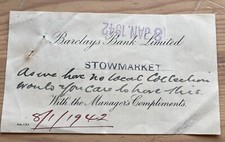 8 JAN. 1942
Barclays Bank Limited
STOWMARKET
As we have no local Collection
would you care to have this.
With the Manager's Compliments.
8/1/1942